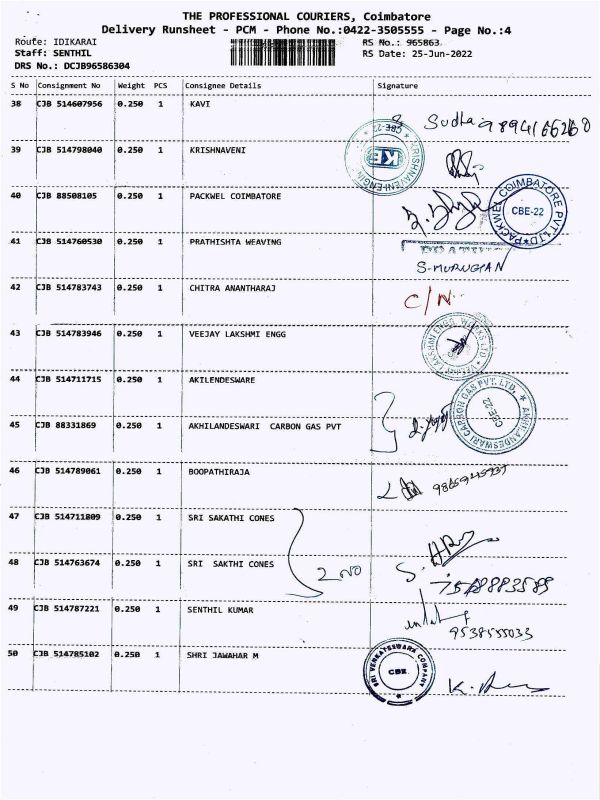 THE PROFESSIONAL COURIERS, Coimbatore
Delivery Runsheet - PCM - Phone No.:0422-3505555 - Page No.:4
Route: IDIKARAI RS No.: 965863
Staff: SENTHIL RS Date: 25-Jun-2022
DRS No.: DCJB96586304
S No Consignment No Weight PCS Consignee Details Signature
38 CJB 514607956 0.250 1 KAVI
Sudha 9894166260
39 CJB 514798040 0.250 1 KRISHNAVENI
KRISHNAVENI ENGIN CBE-22
40 CJB 88508105 0.250 1 PACKWEL COIMBATORE
PACKWEL COIMBATORE PVT LTD CBE-22
41 CJB 514760530 0.250 1 PRATHISHTA WEAVING
S-MURUGAN
42 CJB 514783743 0.250 1 CHITRA ANANTHARAJ
C/N
43 CJB 514783946 0.250 1 VEEJAY LAKSHMI ENGG
44 CJB 514711715 0.250 1 AKILENDESWARE
45 CJB 88331869 0.250 1 AKHILANDESWARI CARBON GAS PVT
AKHILANDESWARI CARBON GAS PVT. LTD. CBE-22
46 CJB 514789061 0.250 1 BOOPATHIRAJA
47 CJB 514711809 0.250 1 SRI SAKATHI CONES
48 CJB 514763674 0.250 1 SRI SAKTHI CONES
2 NO
49 CJB 514787221 0.250 1 SENTHIL KUMAR
9538555033
50 CJB 514785102 0.250 1 SHRI JAWAHAR M
SRI VENKATESWARA COMPANY CBE